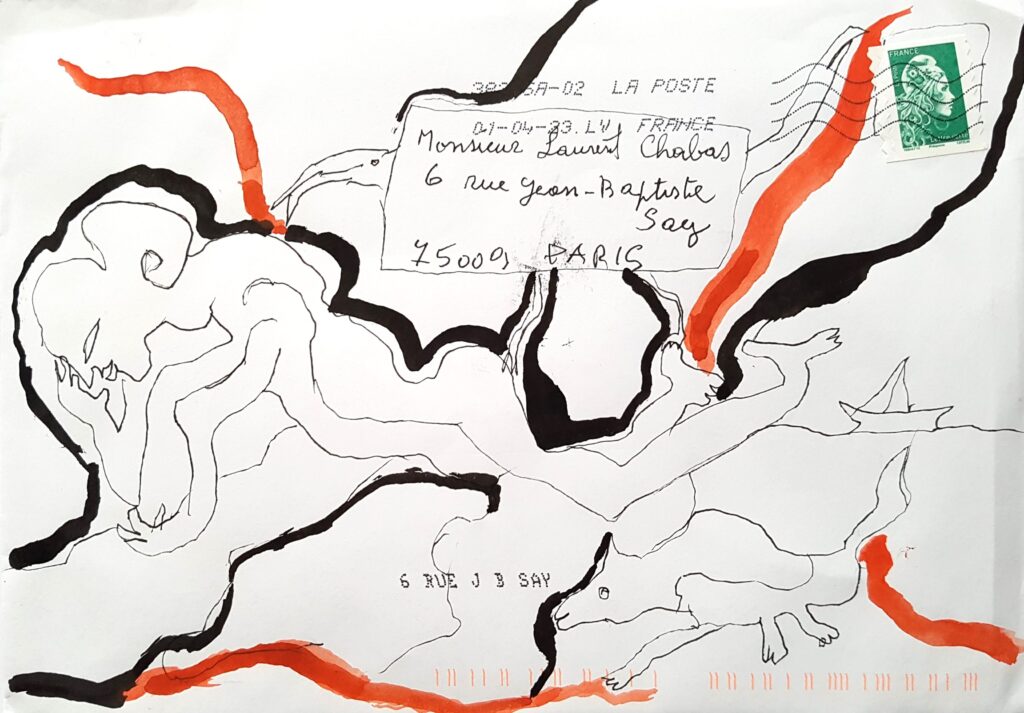 FRANCE
38235A-02 LA POSTE
01-04-23.LV FRANCE
Monsieur Laurent Chabas
6 rue Jean-Baptiste
Say
75009 PARIS
6 RUE J B SAY